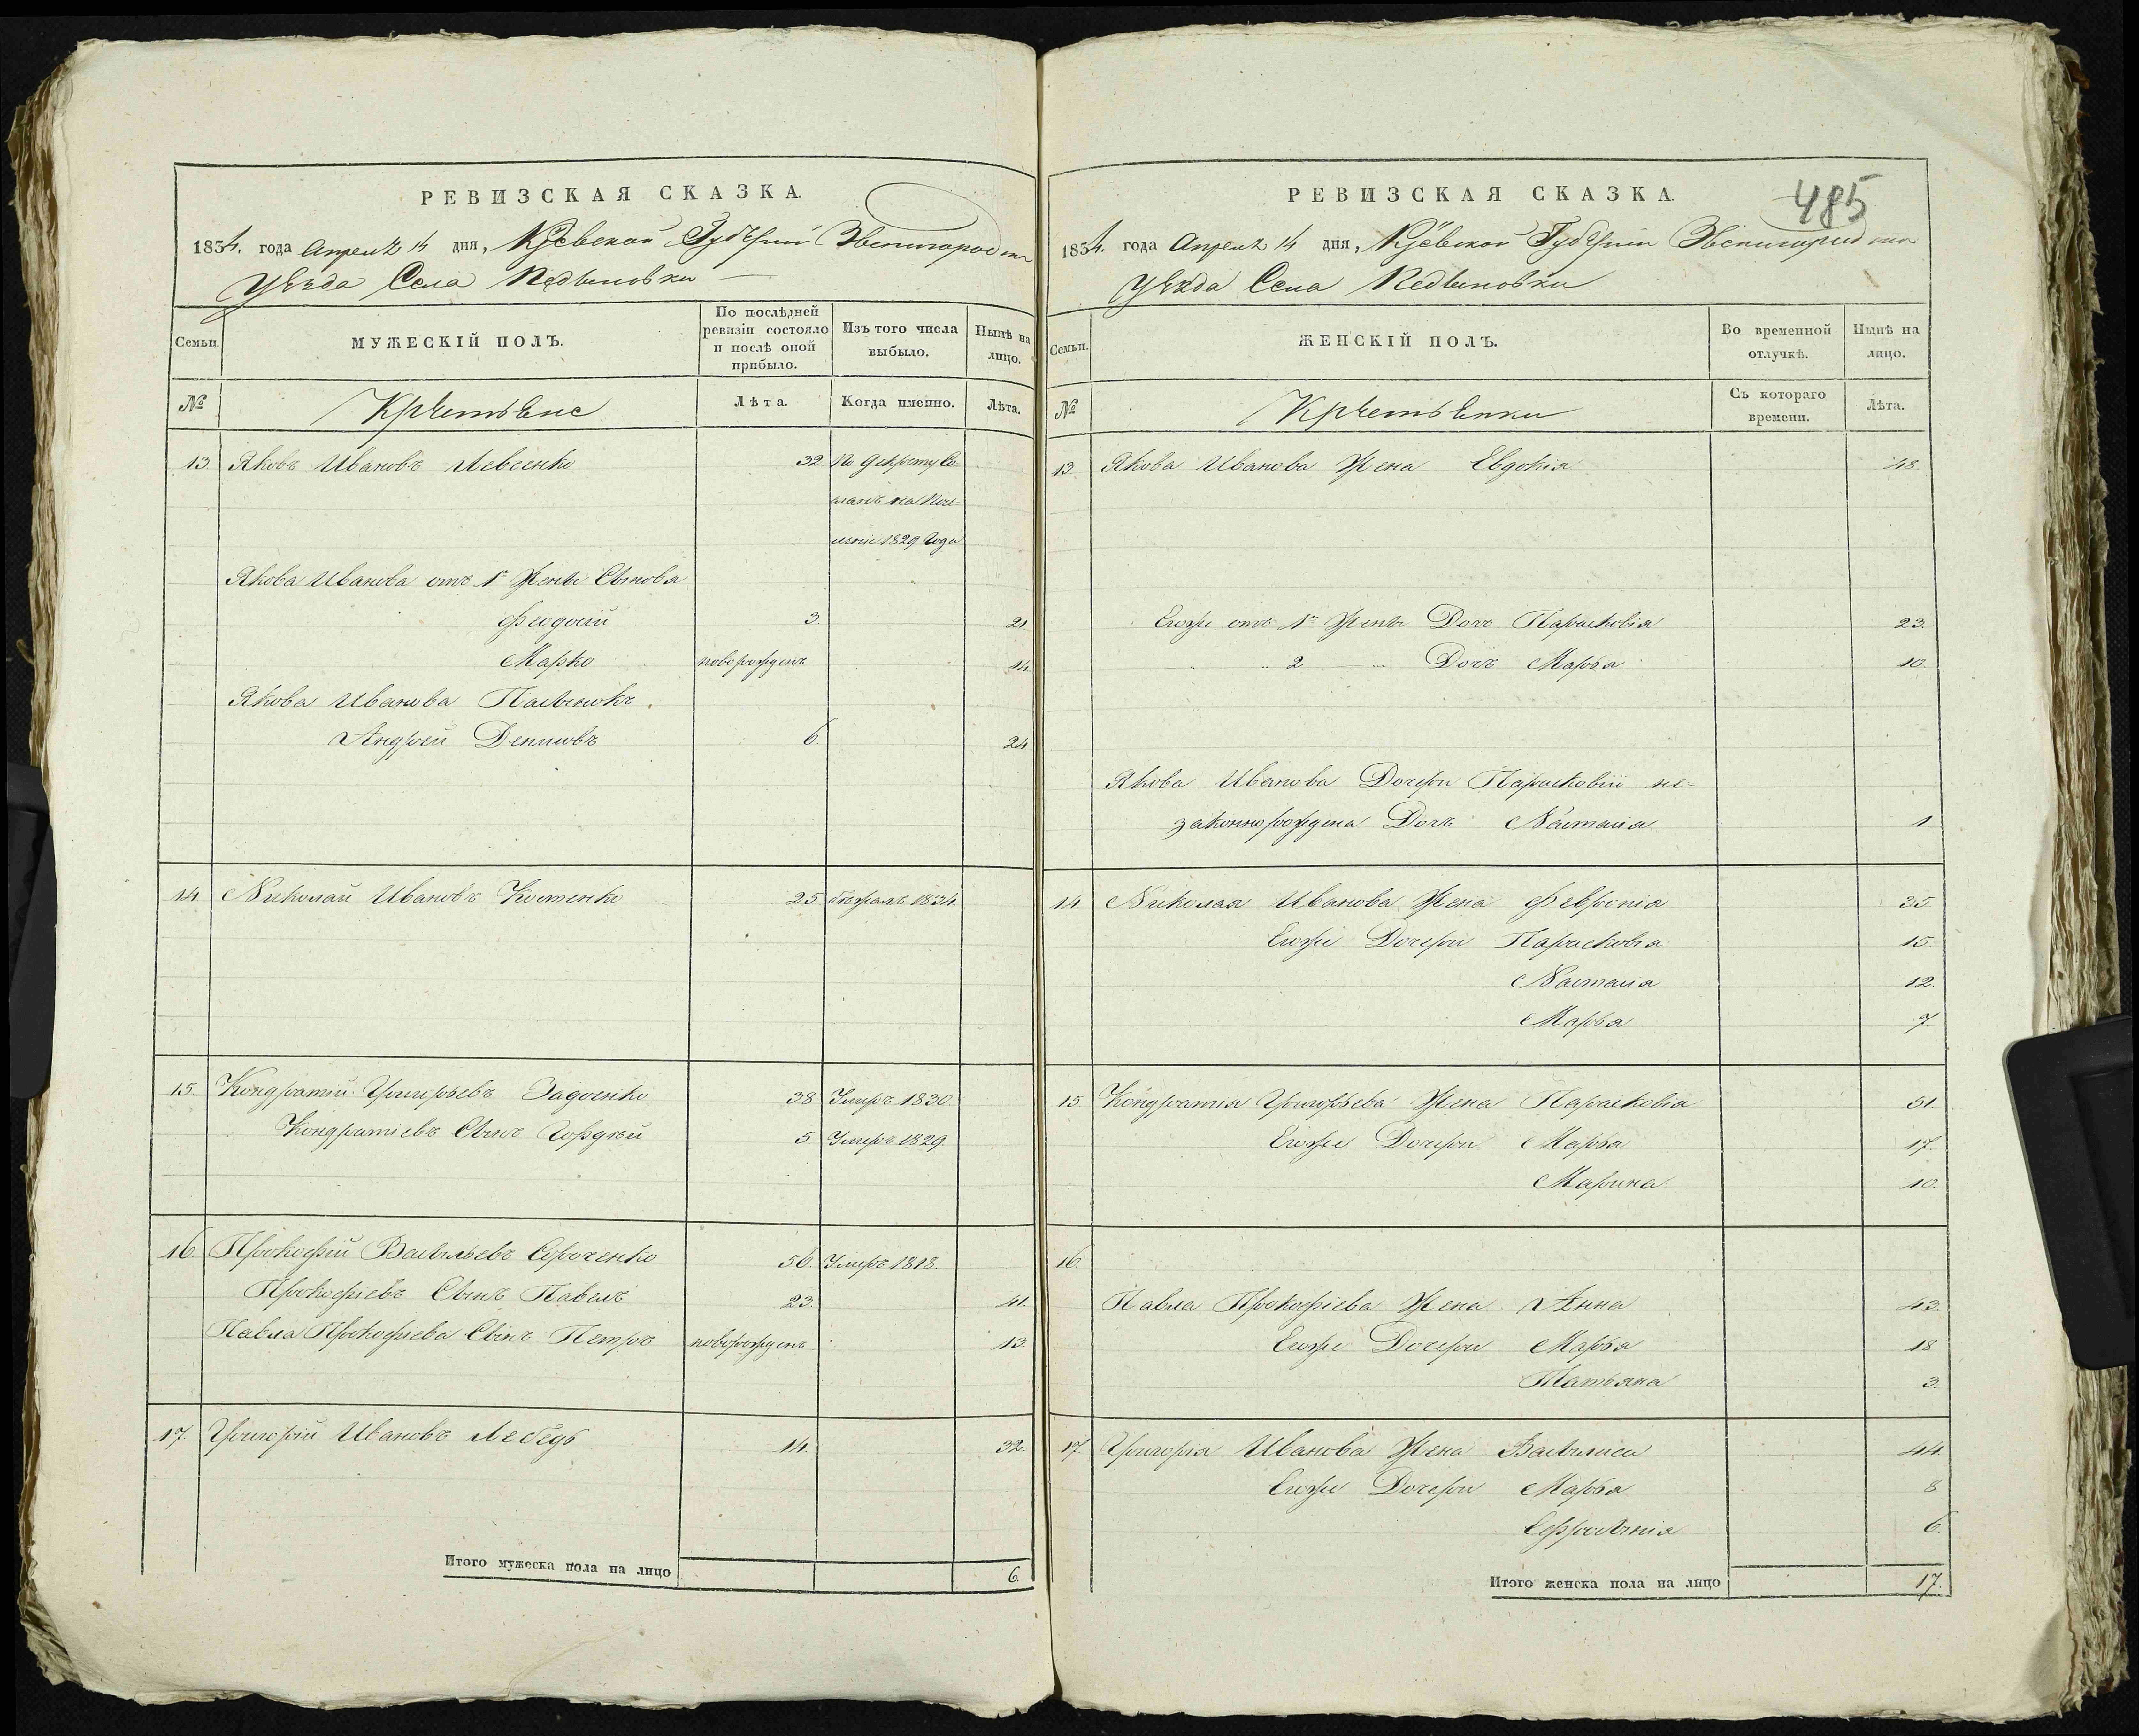 РЕВИЗСКАЯ СКАЗКА.
1834. года Апреля 14 дня, Кіевской Губерніи Звенигородска
Уезда Села
Семьи. МУЖЕСКІЙ ПОЛЪ. По послѣдней ревизіи состояло и послѣ оной прибыло. Изъ того числа выбыло. Нынѣ на лицо.
№ Крестьяне Лѣта. Когда именно. Лѣта.
13. Яковъ Ивановъ Левченко 32. По
1829 Года
Якова Иванова отъ 1й Жены Сыновя
Феодосій 3. 21.
Марко новорожденъ 14.
Якова Иванова Пасынокъ
Андрей Денисовъ 6. 24.
14. Николай Ивановъ Костенко 25. бежалъ 1834.
15. Кондратій Григорьевъ 38 Умеръ 1830.
Кондратіевъ Сынъ Гордѣй 5. Умеръ 1829.
16. Прокофій Васильевъ Сороченко 56. Умеръ 1818.
Прокофіевъ Сынъ Павелъ 23. 41.
Павла Прокофіева Сынъ Петръ новорожденъ 13.
17. Григорій Ивановъ Лебедь 14. 32.
Итого мужеска пола на лицо 6.
485
РЕВИЗСКАЯ СКАЗКА.
1834. года Апреля 14 дня, Кіевской Губерніи Звенигородска
Уезда Села
Семьи. ЖЕНСКІЙ ПОЛЪ. Во временной отлучкѣ. Нынѣ на лицо.
№ Крестьянки Съ котораго времени. Лѣта.
13. Якова Иванова Жена Евдокія 48.
Егоже отъ 1й Жены Дочъ Парасковія 23.
2 Дочъ Марья 10.
Якова Иванова Дочери Парасковіи не=
законнорождена Дочъ Настасия 1.
14. Николая Иванова Жена Февронія 35.
Егоже Дочери Парасковія 15.
Настасия 12.
Марья 7.
15. Кондратія Григорьева Жена Парасковія 51.
Егоже Дочери Марья 17.
Марина 10.
16.
Павла Прокофіева Жена Анна 43.
Егоже Дочери Марья 18
Татьяна 3.
17. Григорія Иванова Жена Василиса 44.
Егоже Дочери Марья 8
Ефросинія 6.
Итого женска пола на лицо 17.